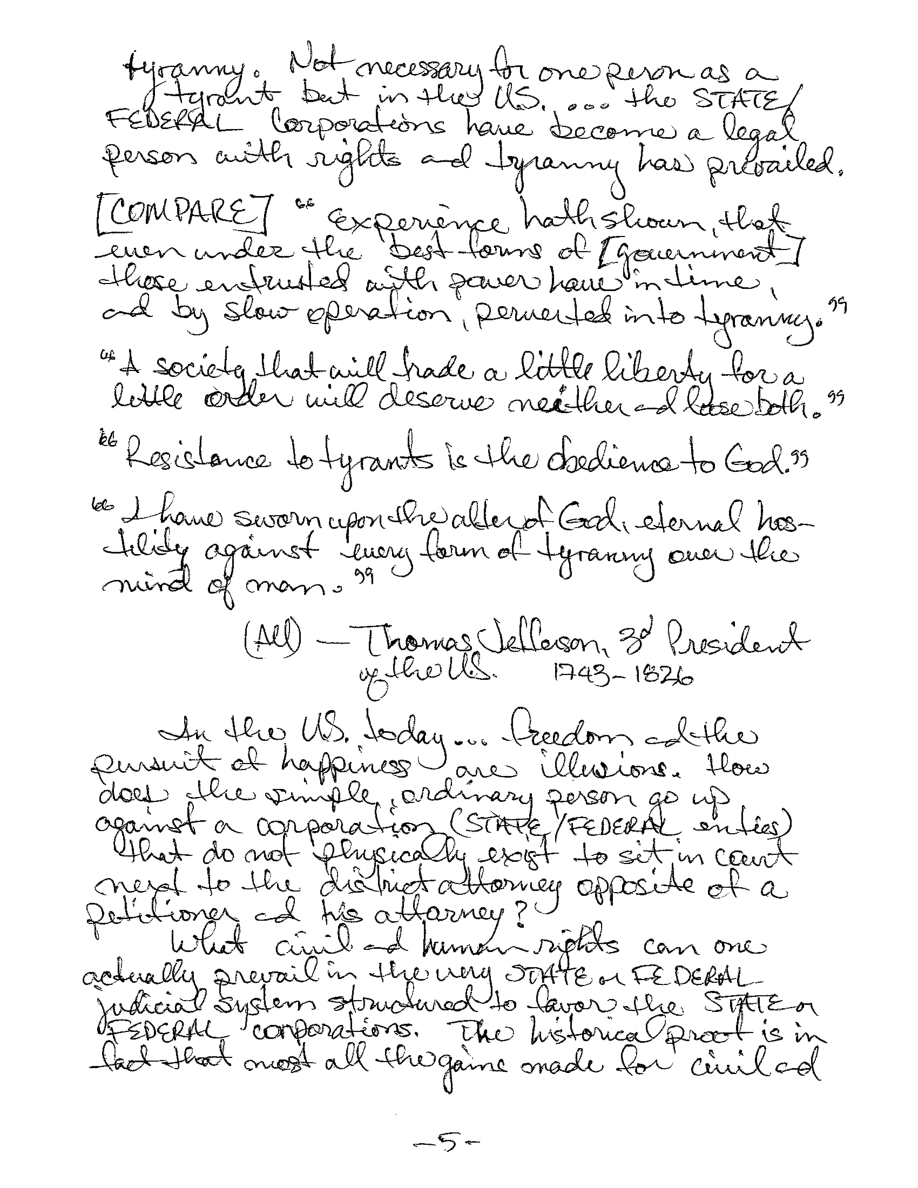 tyranny. Not necessary for one person as a
tyrant but in the US. ... the STATE/
FEDERAL Corporations have become a legal
person with rights and tyranny has prevailed.
[COMPARE] "Experience hath shown, that
even under the best forms of [government]
those entrusted with power have in time,
and by slow operation, perverted into tyranny."
"A society that will trade a little liberty for a
little order will deserve neither and lose both."
"Resistance to tyrants is the obedience to God."
"I have sworn upon the alter of God, eternal hos-
tility against every form of tyranny over the
mind of man."
(All) — Thomas Jefferson, 3d President
of the U.S. 1743-1826
In the U.S. today... freedom and the
pursuit of happiness are illusions. How
does the simple, ordinary person go up
against a corporation (STATE/FEDERAL enties)
that do not physically exist to sit in court
next to the district attorney opposite of a
petitioner and his attorney?
What civil and human rights can one
actually prevail in the very STATE or FEDERAL
judicial system structured to favor the STATE or
FEDERAL corporations. The historical proof is in
fact that most all the gains made for civil and
-5-